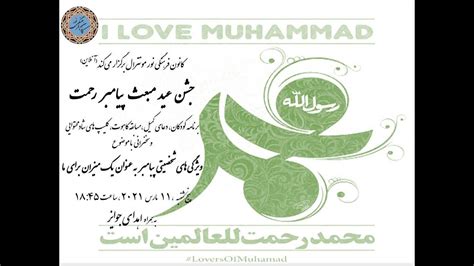 I LOVE MUHAMMAD
کانون فرهنگی نور مونترال برگزار می کند (آنلاین)
جشن عید مبعث پیامبر رحمت
رسول الله
برنامه کودکان، دعای کمیل، مسابقه کاهوت، کلیپ های شاد محتوایی
و سخنرانی با موضوع
ویژگی های شخصیتی پیامبر به عنوان یک میزان برای ما
پنج شنبه ، ۱۱ مارس ۲۰۲۱، ساعت ۱۸:۴۵
به همراه اهدای جوایز
محمد
محمد رحمت للعالمین است
#LoversOfMuhamad